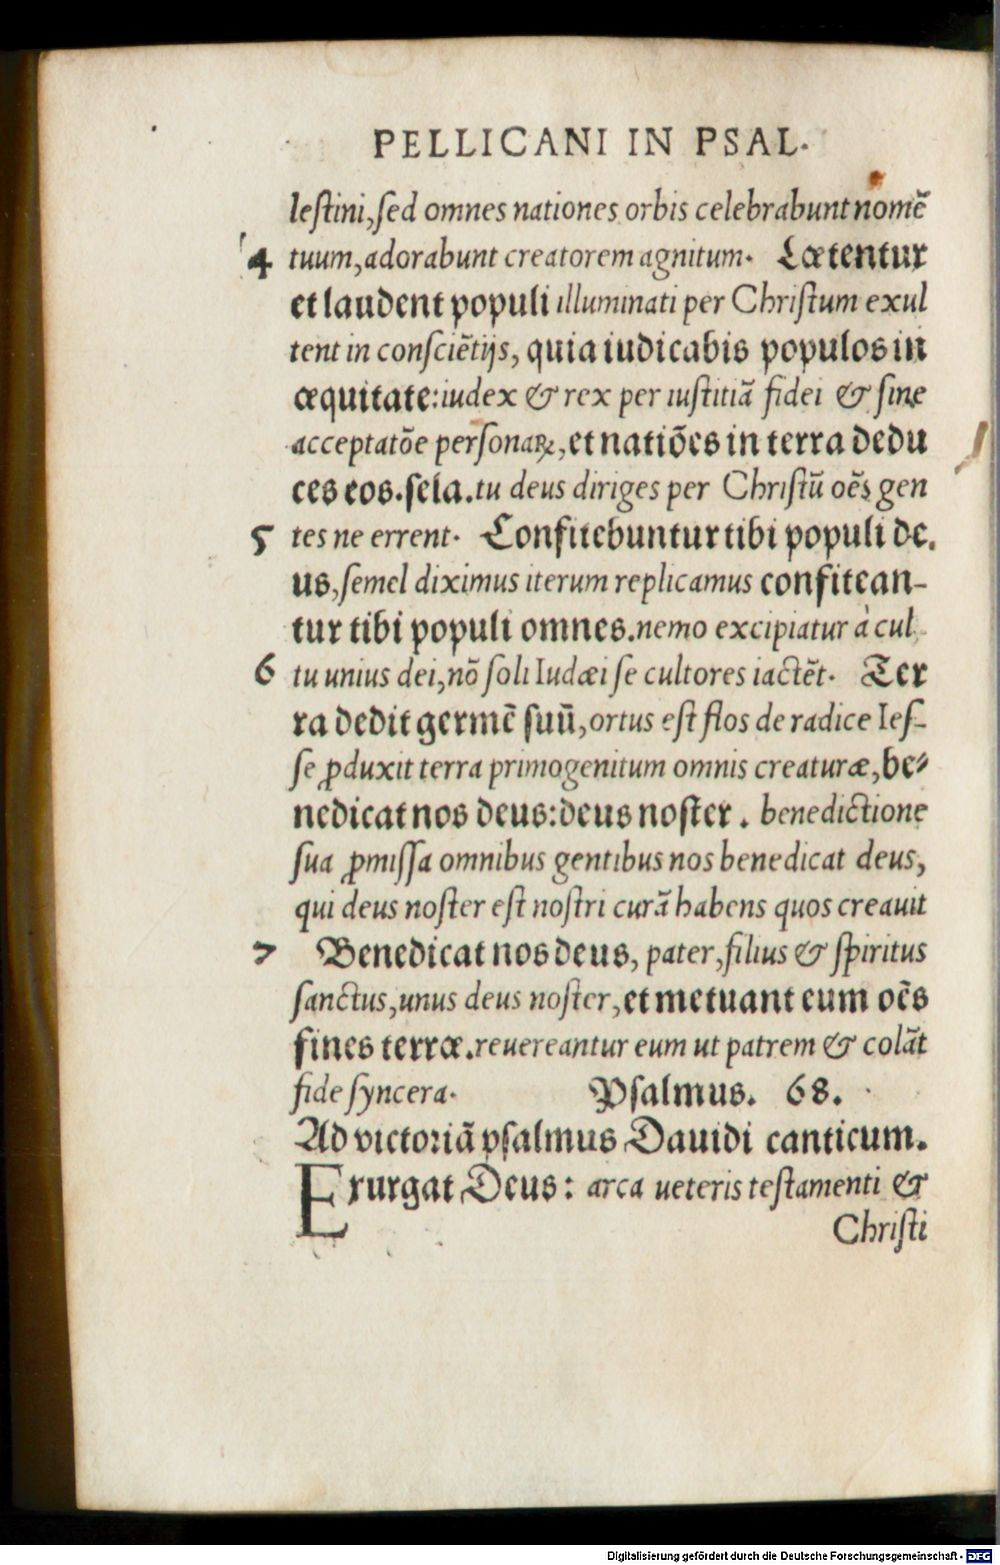 PELLICANI IN PSAL.
leſtini,ſed omnes nationes orbis celebrabunt nomē
4 tuum,adorabunt creatorem agnitum. Lætentur
et laudent populi illuminati per Chriſtum exul
tent in conſciētijs, quia iudicabis populos in
æquitate:iudex & rex per iuſtitiā fidei & ſine
acceptatōe perſonaꝝ,et natiões in terra dedu
ces eos.ſela.tu deus diriges per Chriſtū oēs gen
5 tes ne errent. Confitebuntur tibi populi de.
us,ſemel diximus iterum replicamus confitean-
tur tibi populi omnes.nemo excipiatur à cul
6 tu unius dei,nō ſoli Iudæi ſe cultores iactēt. Ter
ra dedit germē ſuū,ortus eſt flos de radice Ieſ-
ſe ꝓduxit terra primogenitum omnis creaturæ,be⸗
nedicat nos deus:deus noſter. benedictione
ſua ꝓmiſſa omnibus gentibus nos benedicat deus,
qui deus noſter eſt noſtri curā habens quos creauit
7 Benedicat nos deus, pater,filius & ſpiritus
ſanctus,unus deus noſter,et metuant eum oēs
fines terræ.reuereantur eum ut patrem & colāt
fide ſyncera. Pſalmus. 68.
Ad victoriā pſalmus Dauidi canticum.
Exurgat Deus: arca ueteris teſtamenti &
Chriſti
Digitalisierung gefördert durch die Deutsche Forschungsgemeinschaft - DFG